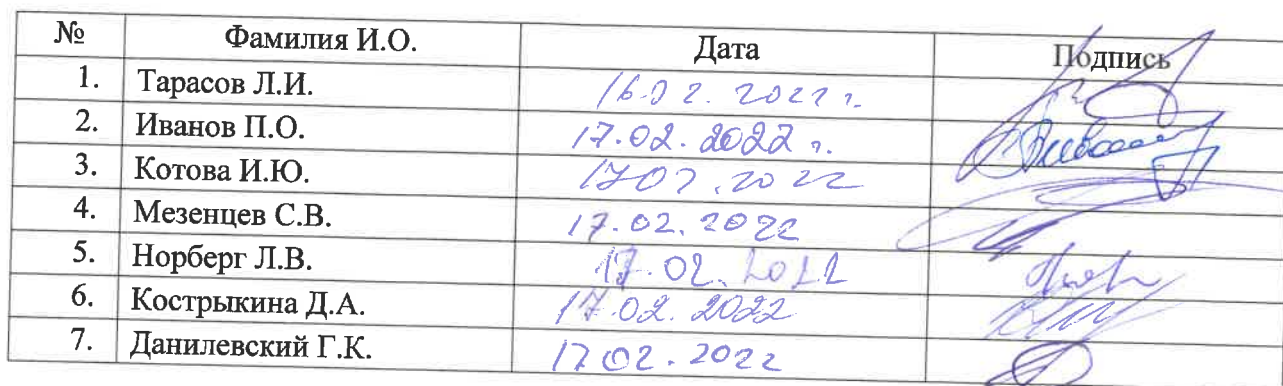 № Фамилия И.О. Дата Подпись
1. Тарасов Л.И. 16.02.2022 г.
2. Иванов П.О. 17.02.2022 г.
3. Котова И.Ю. 17.02.2022
4. Мезенцев С.В. 17.02.2022
5. Норберг Л.В. 17.02.2022
6. Кострыкина Д.А. 17.02.2022
7. Данилевский Г.К. 17.02.2022